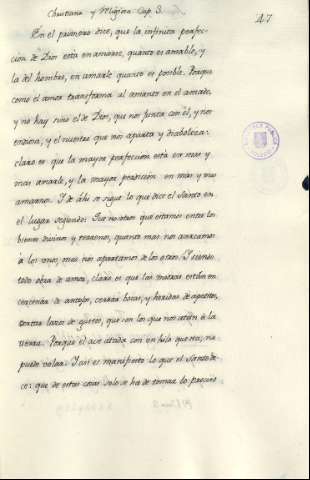 Christiana y Religiosa Cap. 3.
47
En el primero dice, que la infinita perfec-
cion de Dios está en amarse, quanto es amable, y
la del hombre, en amarle quanto es posible. Porque
como el amor transforma al amante en el amado,
y no hay sino el de Dios, que nos junta con él, y nos
endiosa; y el nuestro que nos aparta y diaboliza:
claro es que la mayor perfección está en mas y
mas amarle, y la mayor perdición en mas y mas
amarnos. Y de áhi se sigue lo que dice el Santo en
el lugar segundo: Que nosotros que estamos entre los
bienes divinos y terrenos, quanto mas nos acercamos
á los unos, mas nos apartamos de los otros. Y siendo
todo obra de amor, claro es que las matras están en
cercenar de antojos, cerrar bocas, y heridas de apetitos,
cortar lazos de gustos, que son los que nos atan á la
tierra. Porque el ave atada, con un hilo que sea, no
puede volar. Y asi es manifiesto lo que el Santo di-
ce: que de estas cosas solo se ha de tomar lo preciso